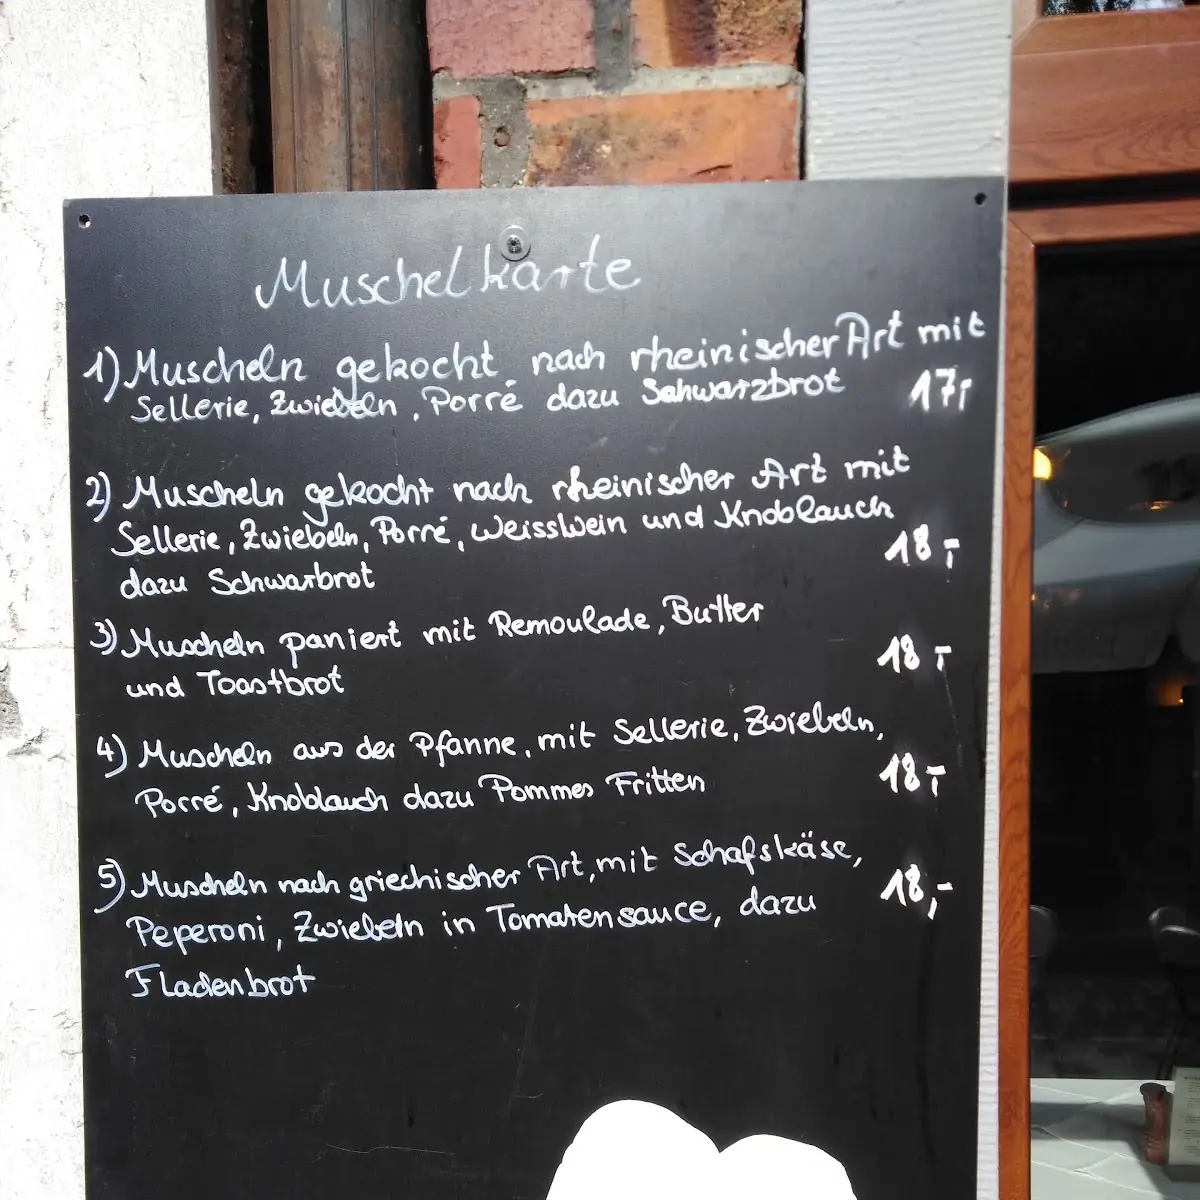 Muschelkarte
1) Muscheln gekocht nach rheinischer Art mit
Sellerie, Zwiebeln, Porré dazu Schwarzbrot 17,-
2) Muscheln gekocht nach rheinischer Art mit
Sellerie, Zwiebeln, Porré, Weisswein und Knoblauch
dazu Schwarbrot 18,-
3) Muscheln paniert mit Remoulade, Butter
und Toastbrot 18,-
4) Muscheln aus der Pfanne, mit Sellerie, Zwiebeln,
Porré, Knoblauch dazu Pommes Fritten 18,-
5) Muscheln nach griechischer Art, mit Schafskäse,
Peperoni, Zwiebeln in Tomatensauce, dazu 18,-
Fladenbrot